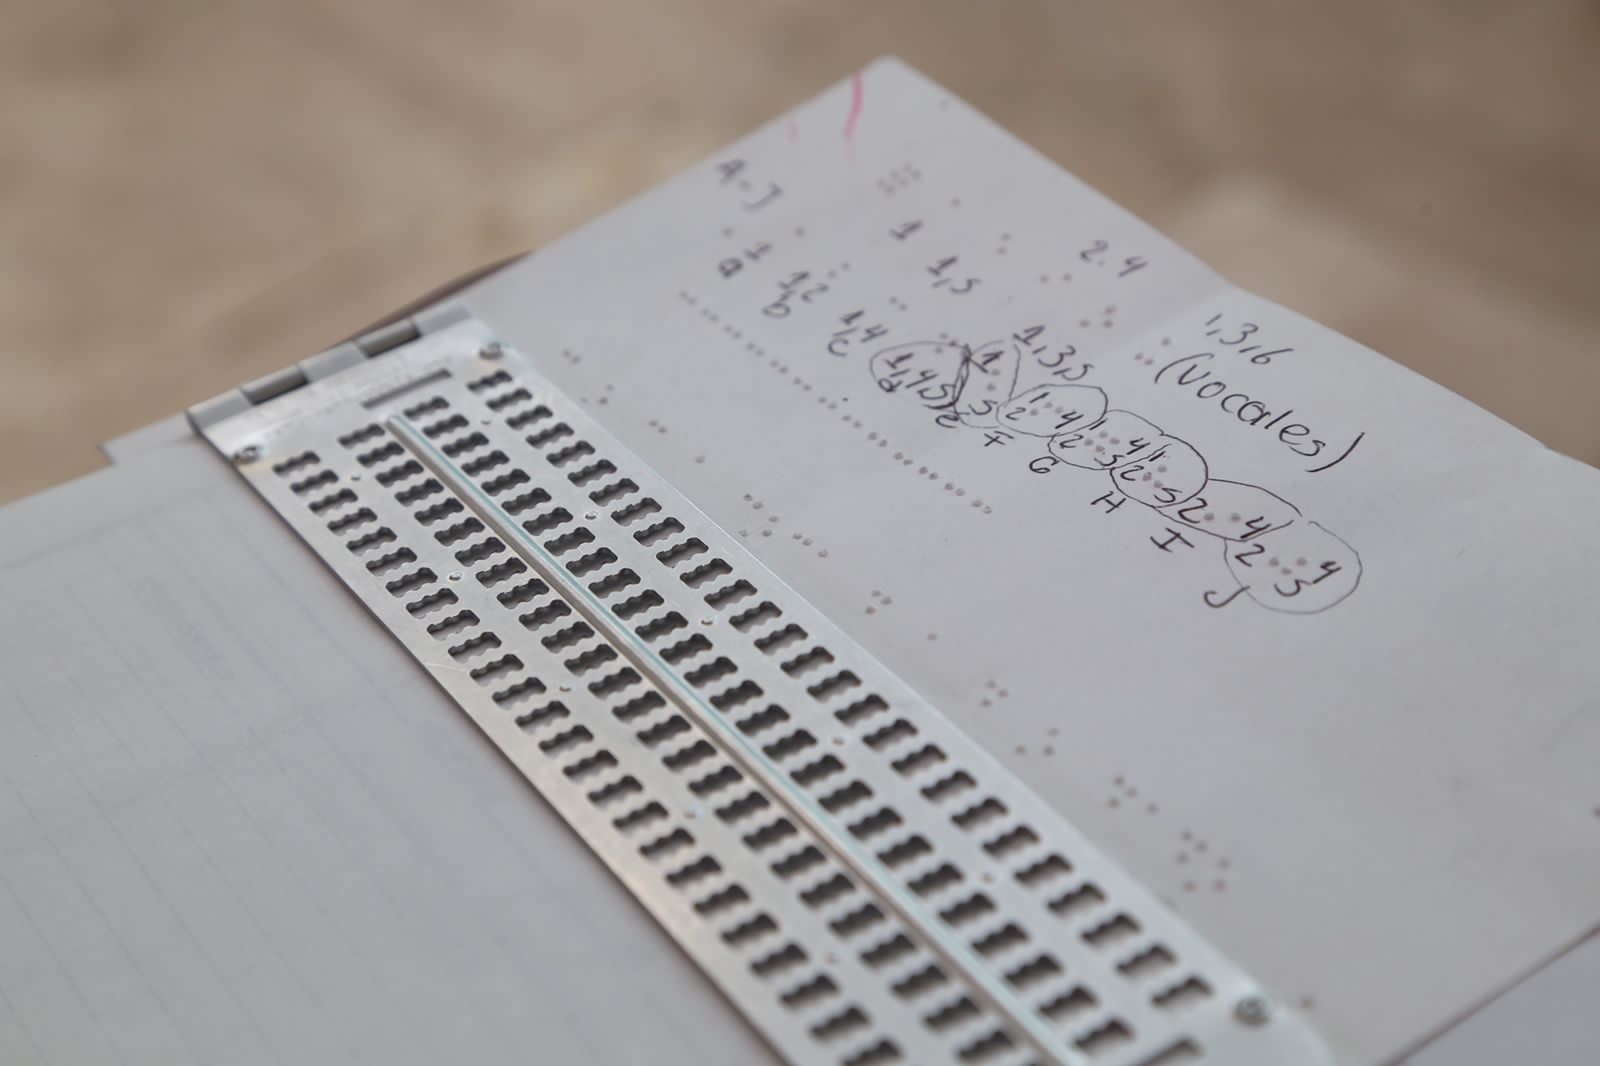 A-J
1 1,5 2.4 1,3,5 1,3,6
(vocales)
1 1,2 1,4 1,4,5 1 5 1 2 4 1 2 4 5 1 2 5 2 4 2 4 5
a b c d e F G H I J